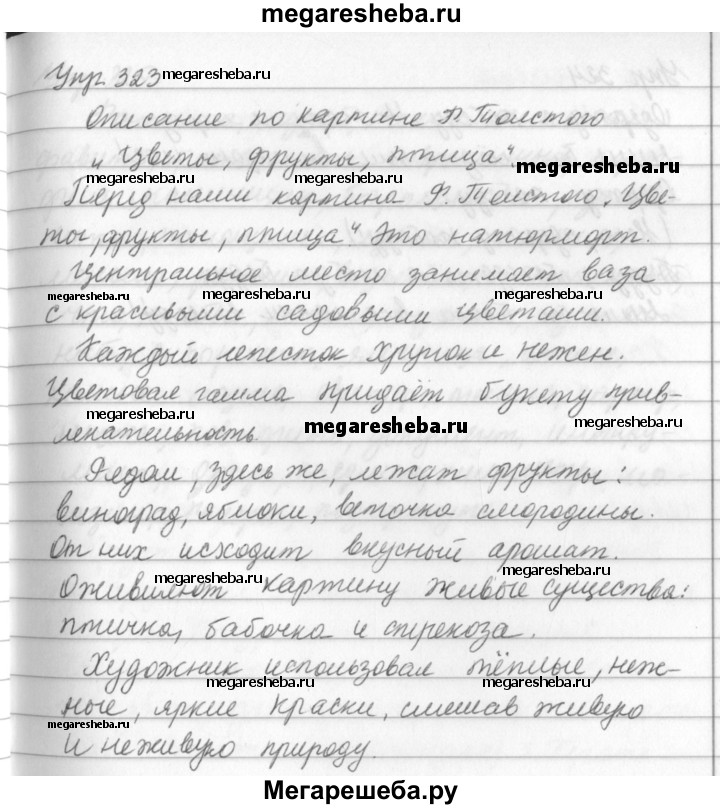 megaresheba.ru
Упр. 323 megaresheba.ru
Описание по картине Ф. Толстого
„Цветы, фрукты, птица“ megaresheba.ru
megaresheba.ru megaresheba.ru
Перед нами картина Ф. Толстого „Цве-
ты, фрукты, птица“. Это натюрморт.
Центральное место занимает ваза
megaresheba.ru megaresheba.ru megaresheba.ru
с красивыми садовыми цветами.
Каждый лепесток хрупок и нежен.
Цветовая гамма придаёт букету прив-
megaresheba.ru megaresheba.ru megaresheba.ru
лекательность.
Рядом, здесь же, лежат фрукты:
виноград, яблоки, веточка смородины.
От них исходит вкусный аромат.
megaresheba.ru megaresheba.ru
Оживляют картину живые существа:
птичка, бабочка и стрекоза.
Художник использовал тёплые, неж-
megaresheba.ru megaresheba.ru
ные, яркие краски, смешав живую
megaresheba.ru
и неживую природу.
Мегарешеба.ру